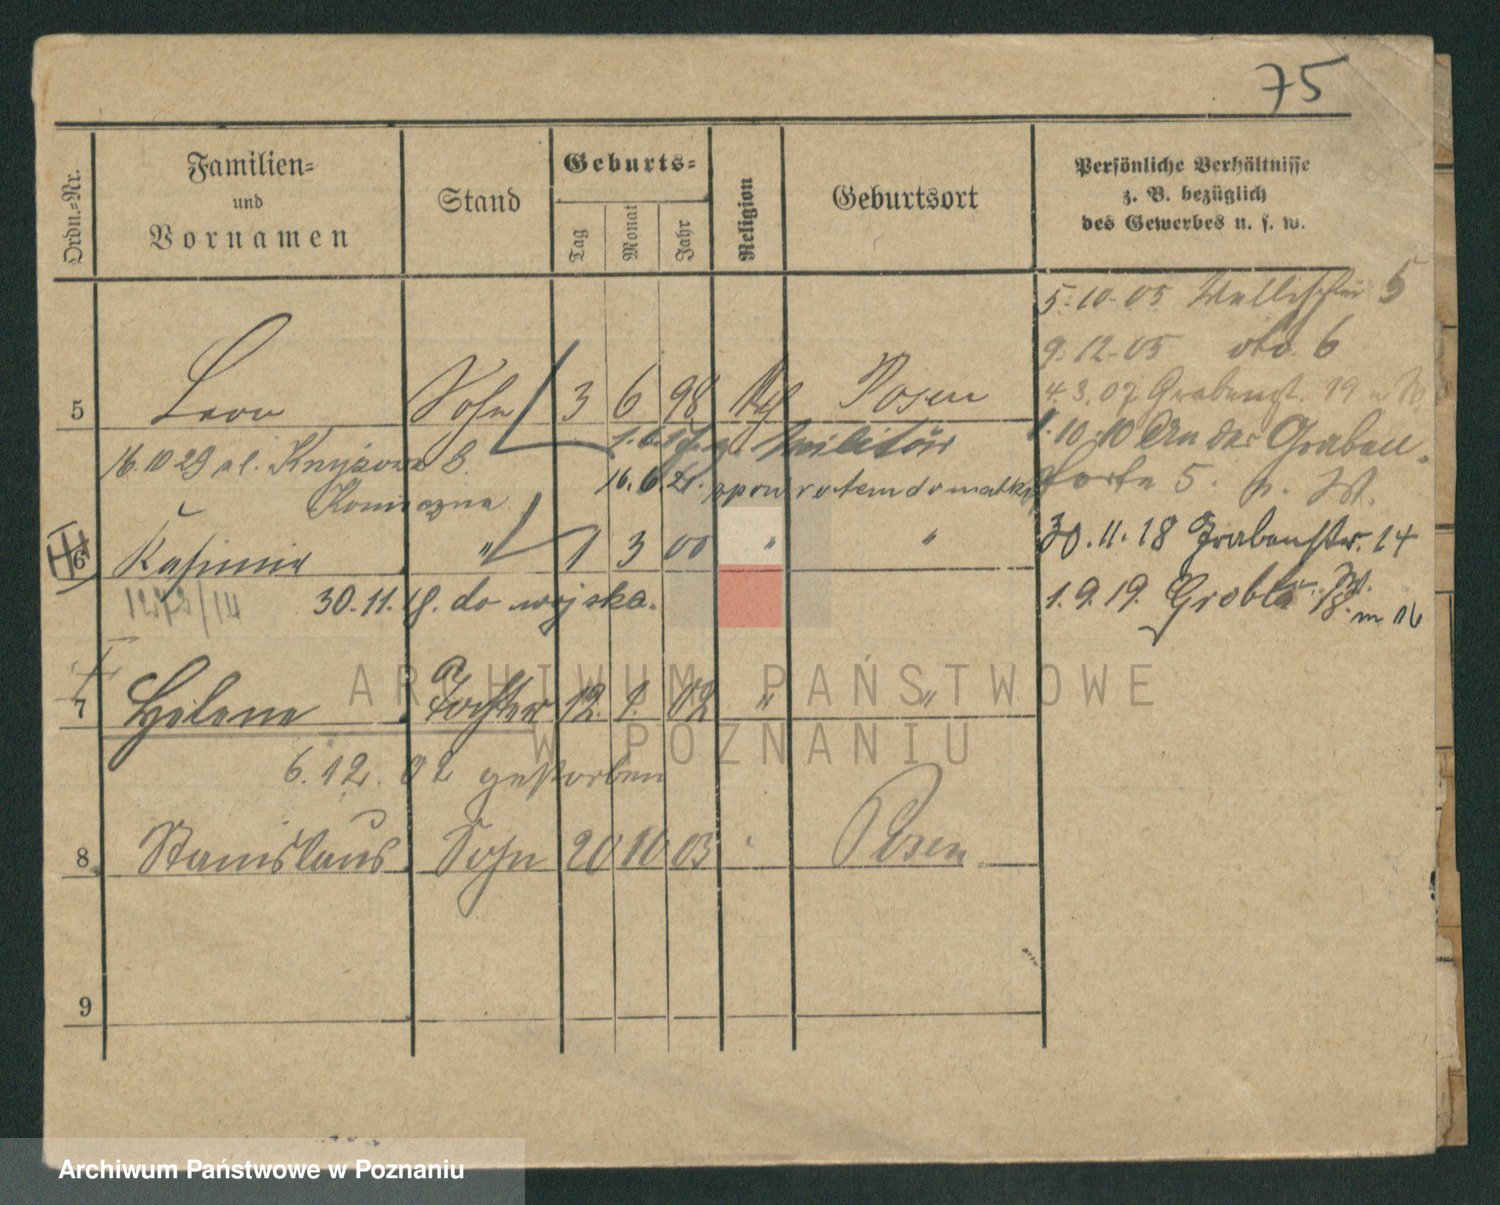 75
Ordn.=Nr.
Familien=
und
Vornamen
Stand
Geburts=
Tag
Monat
Jahr
Religion
Geburtsort
Persönliche Verhältnisse
z. B. bezüglich
des Gewerbes u. s. w.
5.10.05 Wallischei 5
9.12.05 oto 6
5 Leon Sohn 3 6 98 Posen
4.3.07 Grabenst. 19
Militär
1.10.10 An der Graben-
16.10.29 ul. 8.
16.6.21. do matki
pforte 5. W.
Konieczna
6 Kasimir " 1 3 00 " "
30.11.18 Grabenstr. 14
1272/14 30.11.18. do wojska.
1.9.19. Grobla 18. m 16
7 Helene Tochter 12. 1. 02 " "
6.12.02 gestorben
8 Stanislaus Sohn 20 10 03 Posen
9
ARCHIWUM PAŃSTWOWE
W POZNANIU
Archiwum Państwowe w Poznaniu